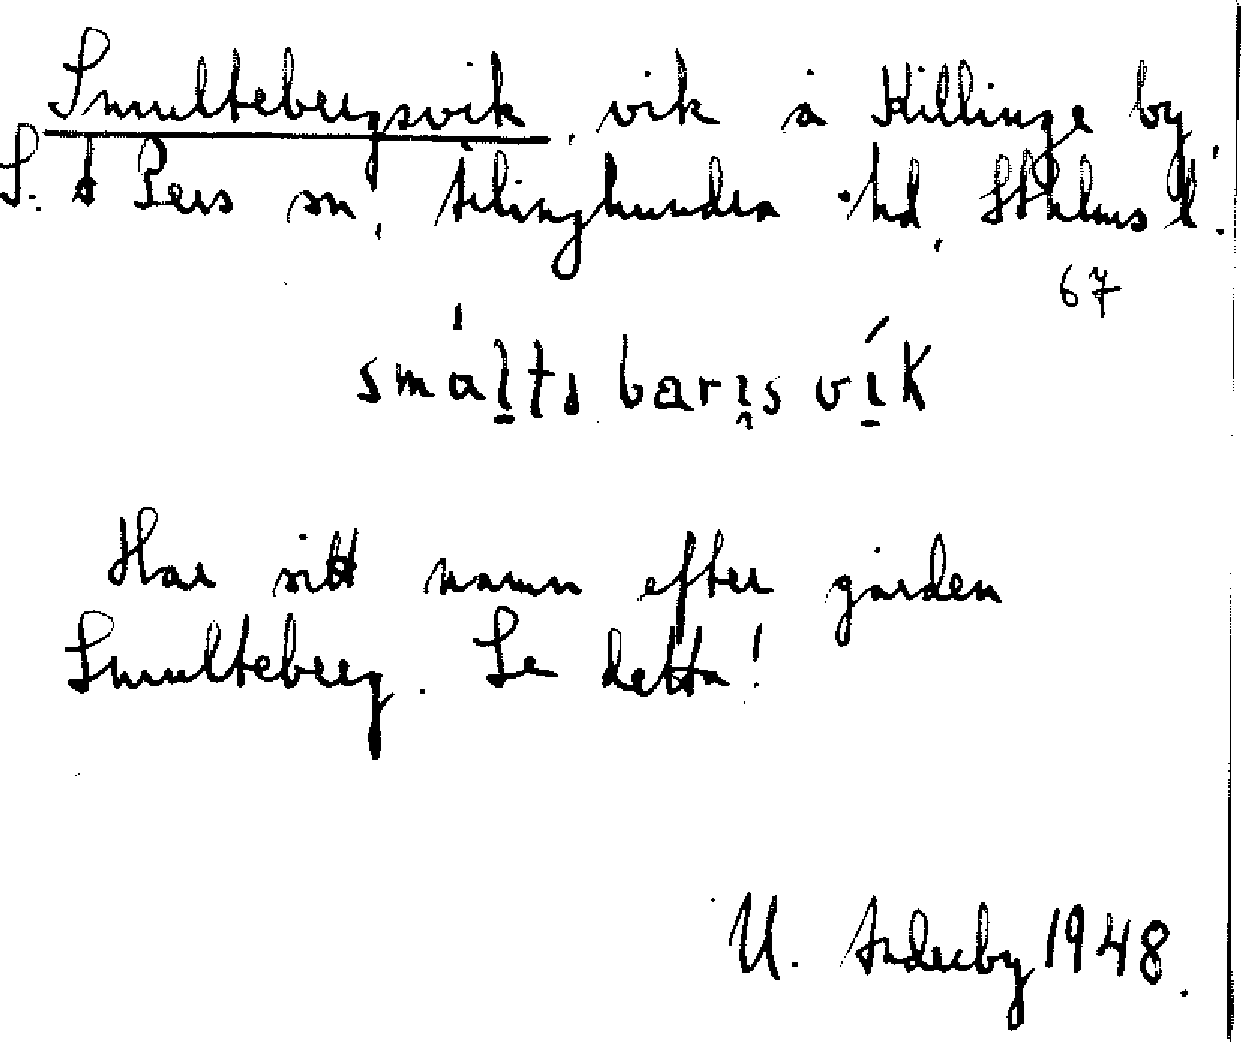 Smultebergsvik, vik å Killinge by,
S:t Pers sn, Ærlinghundra hd, Sthlms l.
67
Har sitt namn efter gården
Smulteberg. Se detta!
U. 1948.